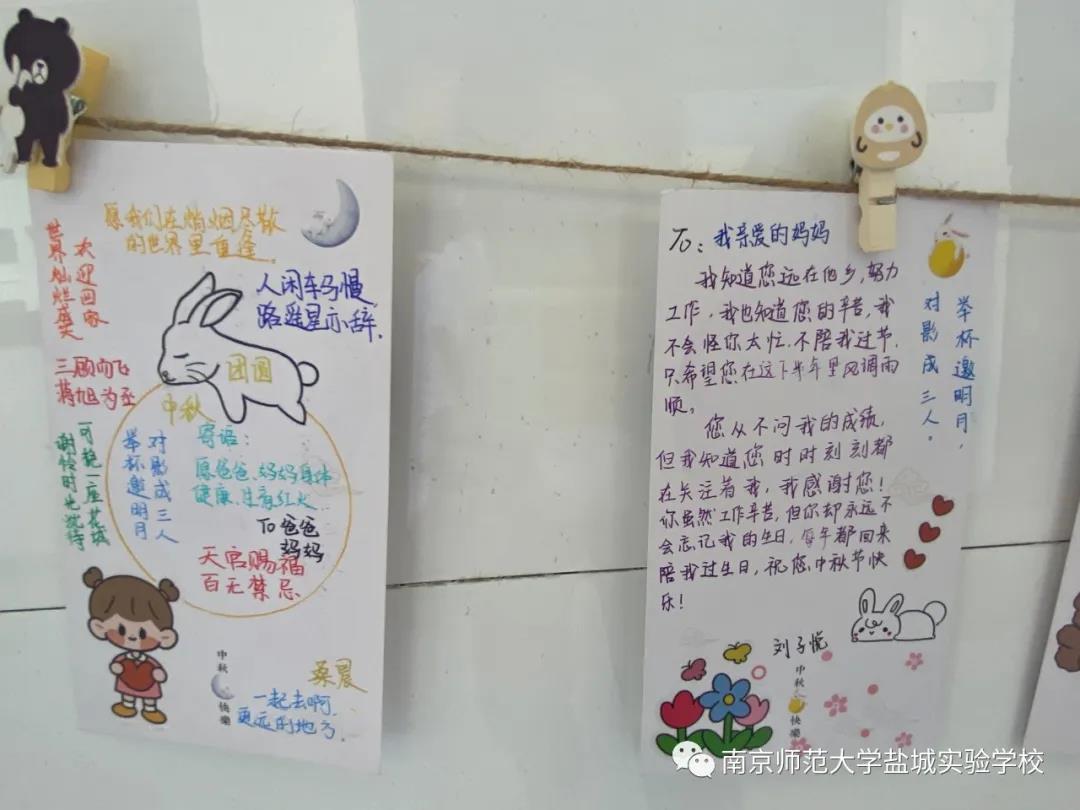 愿我们在硝烟尽散
的世界里重逢。
世界灿烂盛大
欢迎回家
人闲车马慢
路遥星亦辞.
三顾向飞
蒋旭为丞
团圆
中秋
可抵一座花城
对影成三人
举杯邀明月
寄语：
愿爸爸、妈妈身体
健康、生意红火.
TO爸爸
妈妈
天官赐福
百无禁忌
中秋
快樂
桑晨
一起去啊,
更远的地方.
To：我亲爱的妈妈
我知道您远在他乡,努力
工作,我也知道您的辛苦,我
不会怪你太忙.不陪我过节.
只希望您在这下半年里风调雨
顺。
您从不问我的成绩,
但我知道您时时刻刻都
在关注着我,我感谢您!
你虽然工作辛苦,但你却永远不
会忘记我的生日,每年都回来
陪我过生日,祝您中秋节快
乐!
刘子悦
举杯邀明月,
对影成三人。
中秋
快樂
南京师范大学盐城实验学校